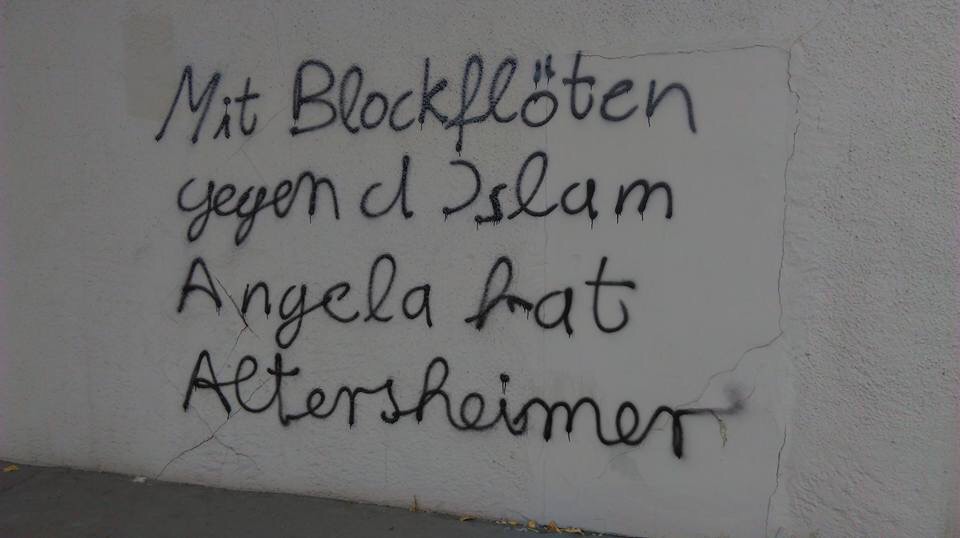 Mit Blockflöten
gegen d Islam
Angela hat
Altersheimer